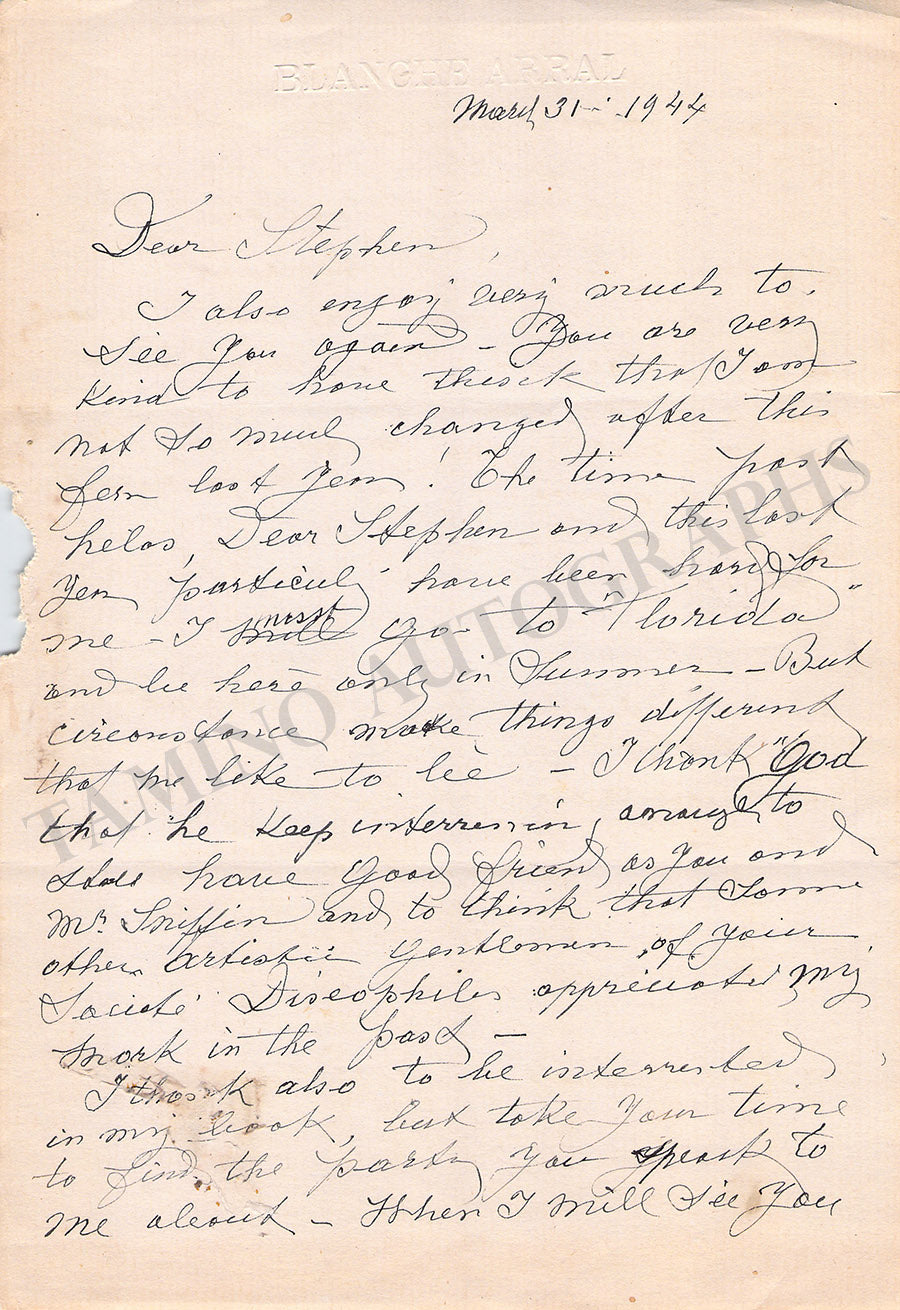 BLANCHE ARRAL
March 31 - 1944
Dear Stephen,
I also enjoy very much to
see you again - You are very
Kind to have think that I am
not so much changed after this
few last year! The time past
helas, Dear Stephen and this last
year particuly have been hard for
me - I must go to "Florida"
and be here only in Summer - But
circonstance make things different
that we like to be - I thank "God
that he keep to
have good friend as you and
Mr Sniffin and to think that some
other artistic gentlemen of your
Société Discophiles appreciated my
work in the past -
I thank also to be interrested
in my book, but take your time
to find the party you speak to
me about - When I will see you
TAMINO AUTOGRAPHS